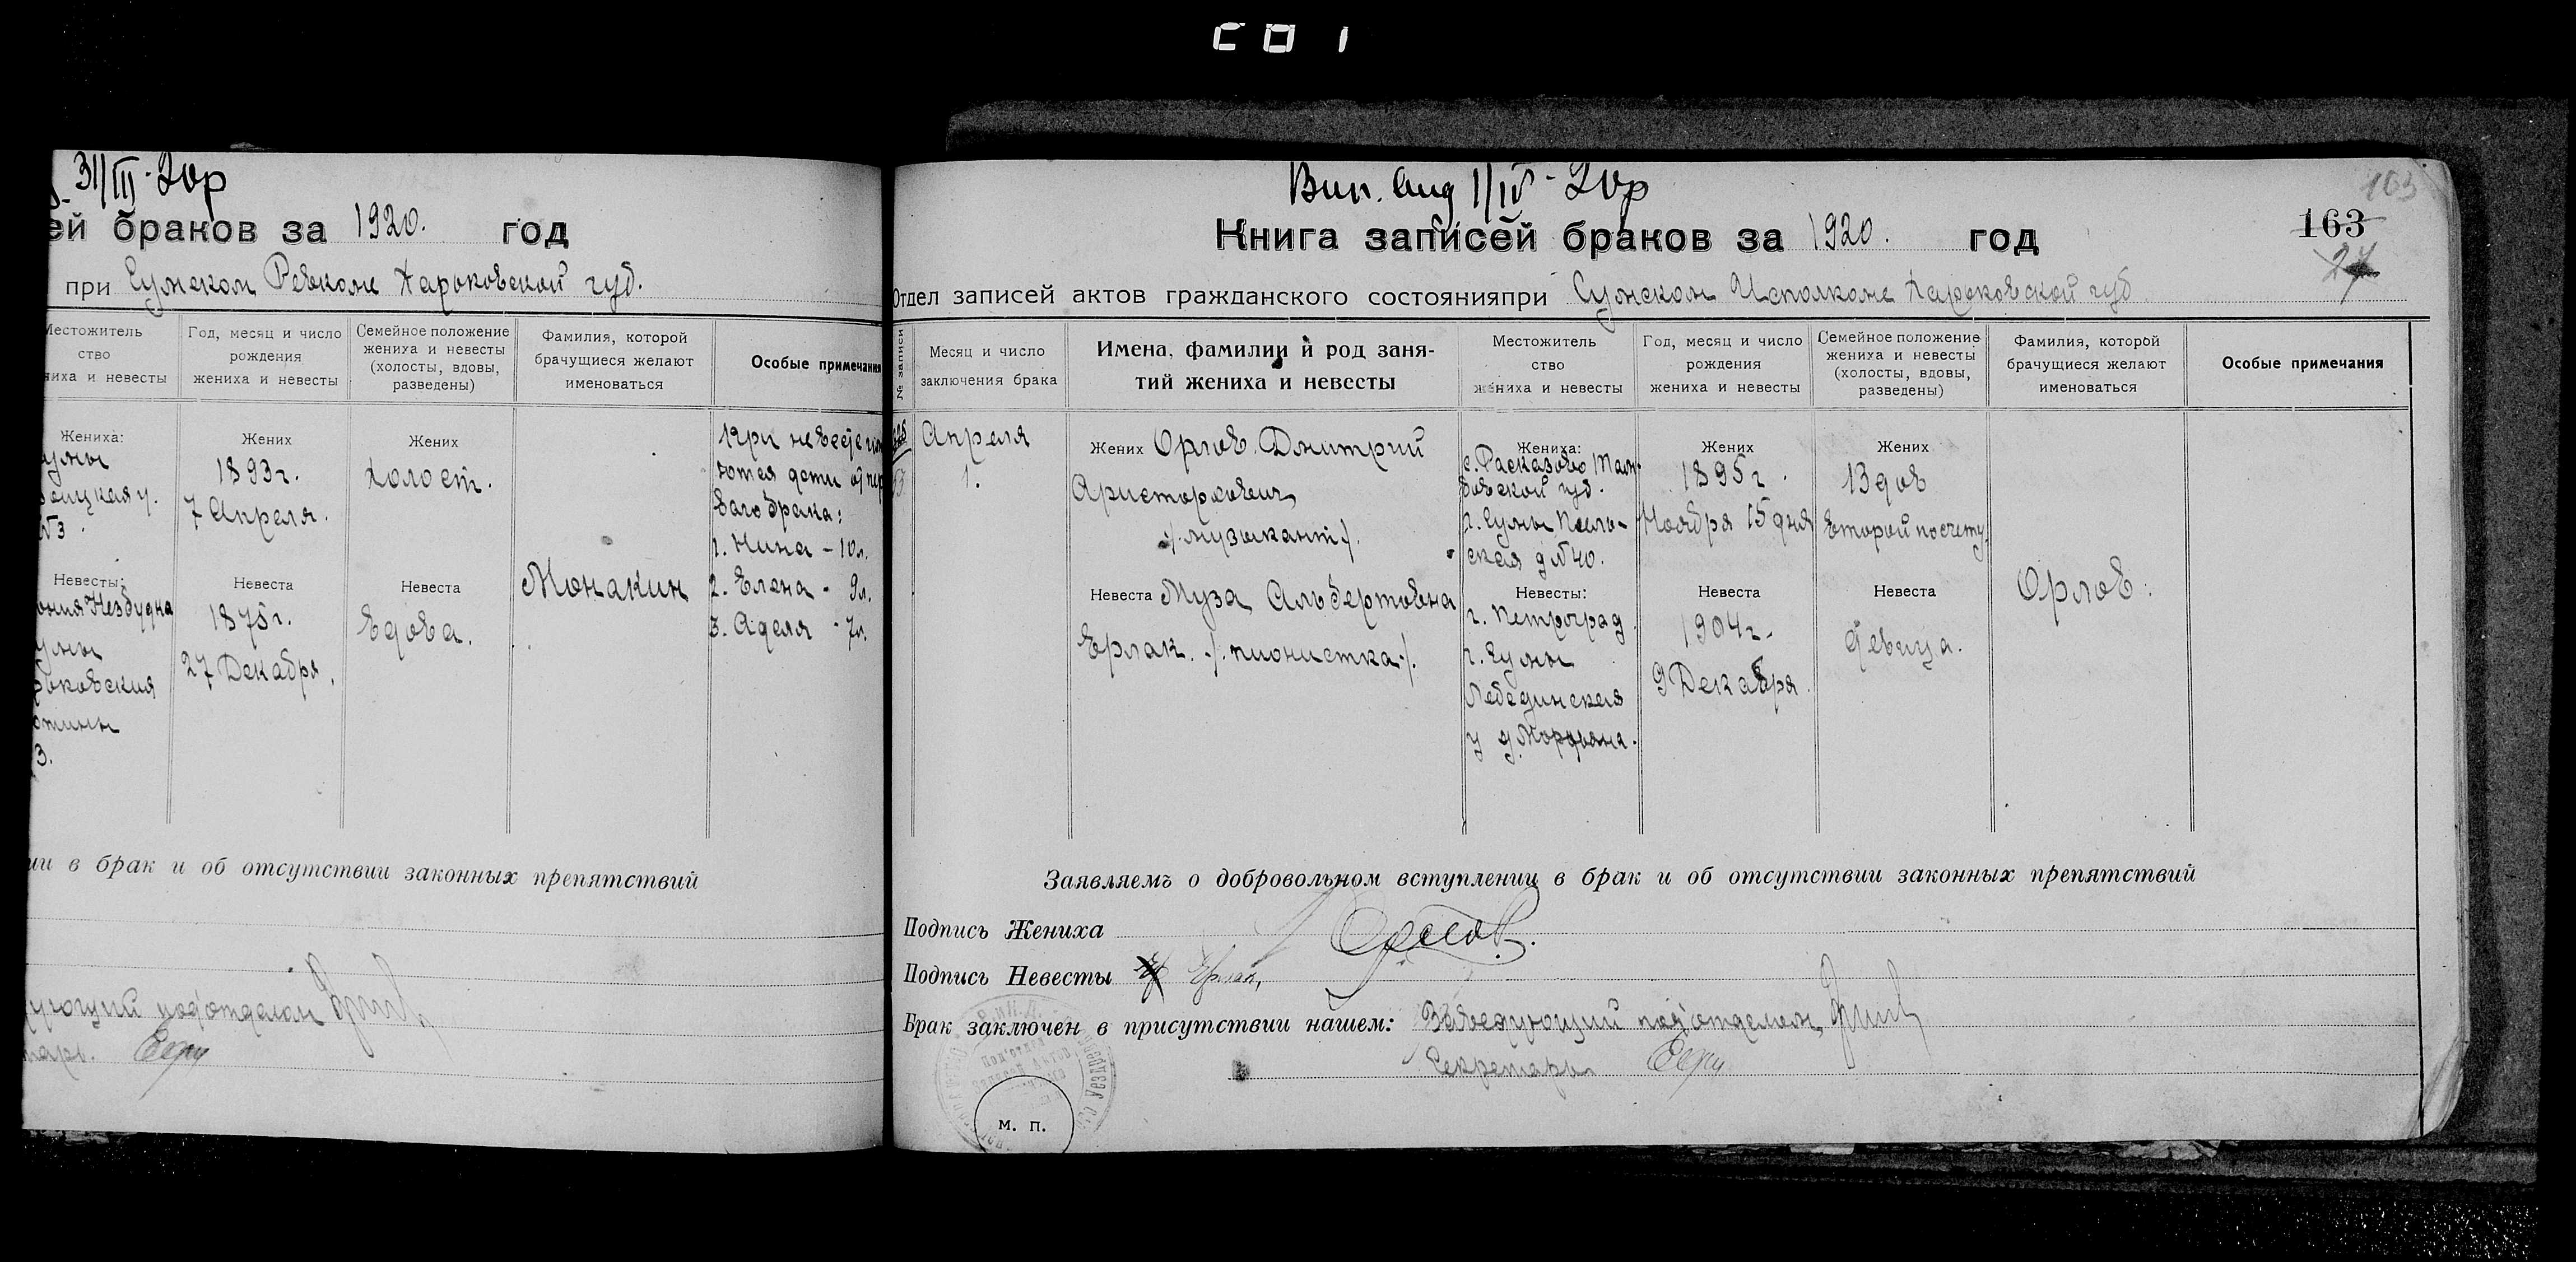 C01
31/III-20р
ей браков за 1920. год
при Сумском Ревкоме Харьковской губ.
Местожитель
ство
ниха и невесты
Год, месяц и число
рождения
жениха и невесты
Семейное положение
жениха и невесты
(холосты, вдовы,
разведены)
Фамилия, которой
брачущиеся желают
именоваться
Особые примечания
Жениха:
умы
оицкая у.
№3.
Невесты:
умы
рьковская
3.
Жених
1893г.
7 Апреля.
Невеста
1875г.
27 Декабря.
Жених
Холост.
Невеста
Вдова.
Монакин
При невесте име
ются дети от пер
ваго брака:
1. Нина - 10л.
2. Елена - 9л.
3. Аделя - 7л.
ии в брак и об отсутствии законных препятствий
ующий под'отделом
тарь.
Вип. 1/IV-20р
163
Книга записей браков за 1920. год
163
27
Отдел записей актов гражданского состояния при Сумском Исполкоме Харьковской губ
№ записи
Месяц и число
заключения брака
Имена, фамилии и род заня-
тий жениха и невесты
Местожитель
ство
жениха и невесты
Год, месяц и число
рождения
жениха и невесты
Семейное положение
жениха и невесты
(холосты, вдовы,
разведены)
Фамилия, которой
брачущиеся желают
именоваться
Особые примечания
Апреля
1.
Жених Орлов Дмитрий
Аристархович
/.музыкант./.
Невеста Муза Альбертовна
Ерлак. /.пионистка./.
Жениха:
с. Расказово Там-
бовской губ.
г. Сумы Псель-
ская д №40.
Невесты:
г. Петроград
г. Сумы
Лебединская
у д. Мордвана.
Жених
1895г.
Ноября 15 дня
Невеста
1904г.
9 Декабря.
Жених
Вдов
второй по счету.
Невеста
девица.
Орлов.
Заявляемъ о добровольном вступлении в брак и об отсутствии законных препятствий
Подпись Жениха Орлов.
Подпись Невесты Ерлак,
Брак заключен в присутствии нашем: Заведующий под'отделом
Секретарь
м. п.